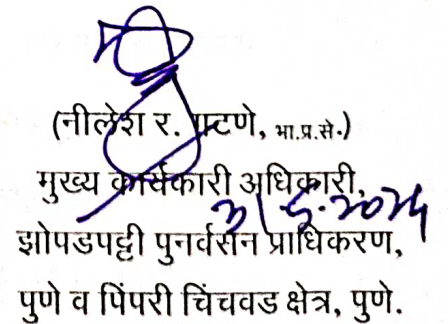 (नीलेश र. गटणे, भा.प्र.से.)
मुख्य कार्यकारी अधिकारी,
झोपडपट्टी पुनर्वसन प्राधिकरण,
पुणे व पिंपरी चिंचवड क्षेत्र, पुणे.